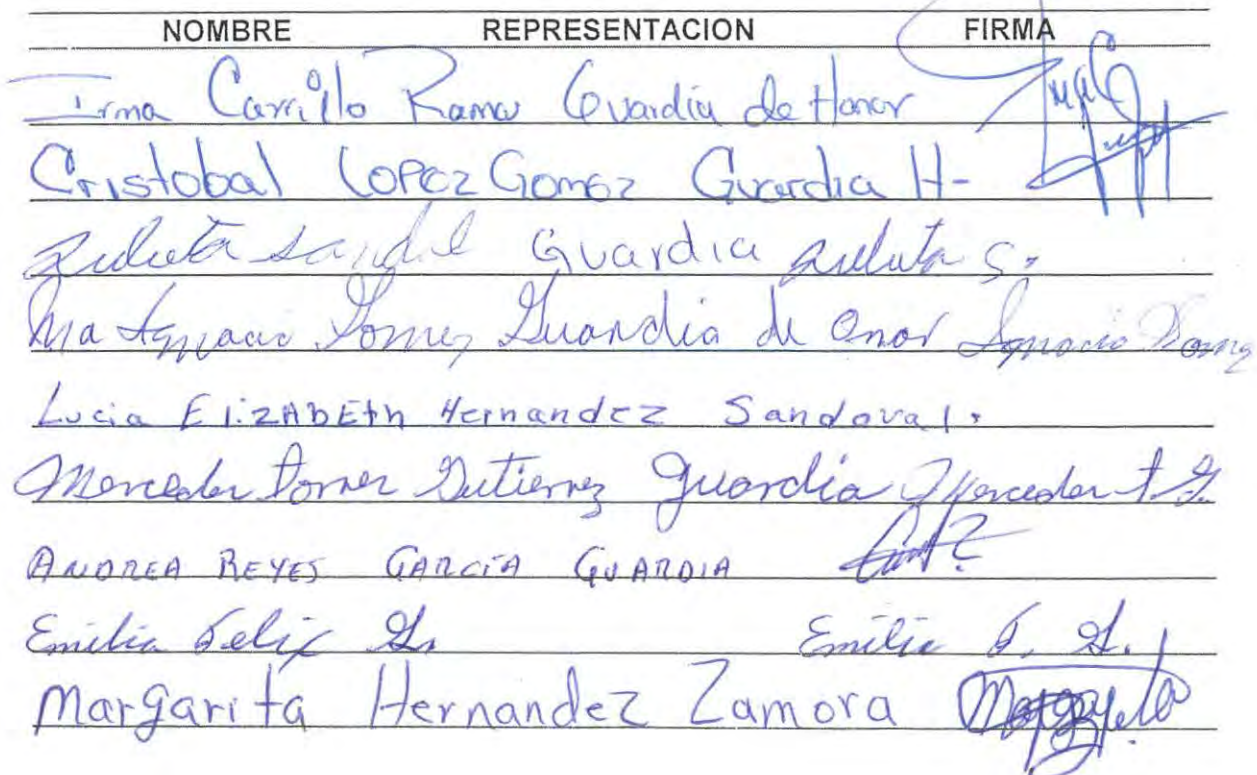 NOMBRE REPRESENTACION FIRMA
Irma Carrillo Ramos Guardia de Honor
Cristobal Lopez Gomez Guardia H-
Zuleta Guardia Zuleta S.
Ma Ignacio Gomez Guardia de Onor Ignacio Gomez
Lucia ElizAbEth Hernandez Sandoval.
Mercedes Torres Gutierrez guardia Mercedes T. G.
ANDREA REYES GARCÍA GUARDIA
Emilia Felix G. Emilia F. G.
Margarita Hernandez Zamora Margarita